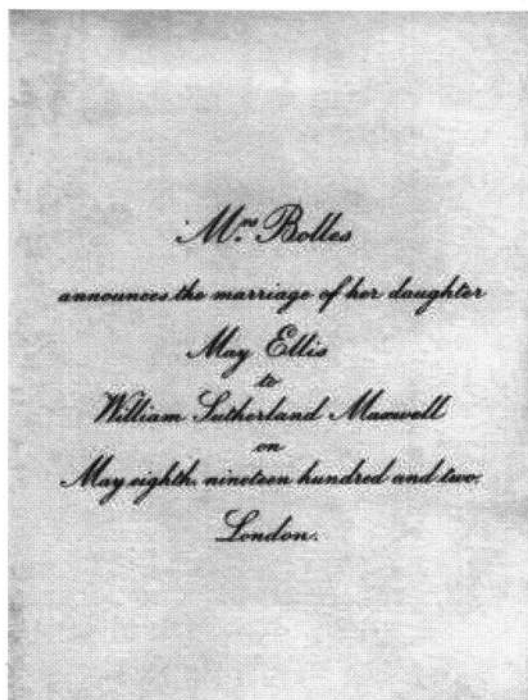 Mrs. Bolles
announces the marriage of her daughter
May Ellis
to
William Sutherland Maxwell
on
May eighth, nineteen hundred and two.
London.